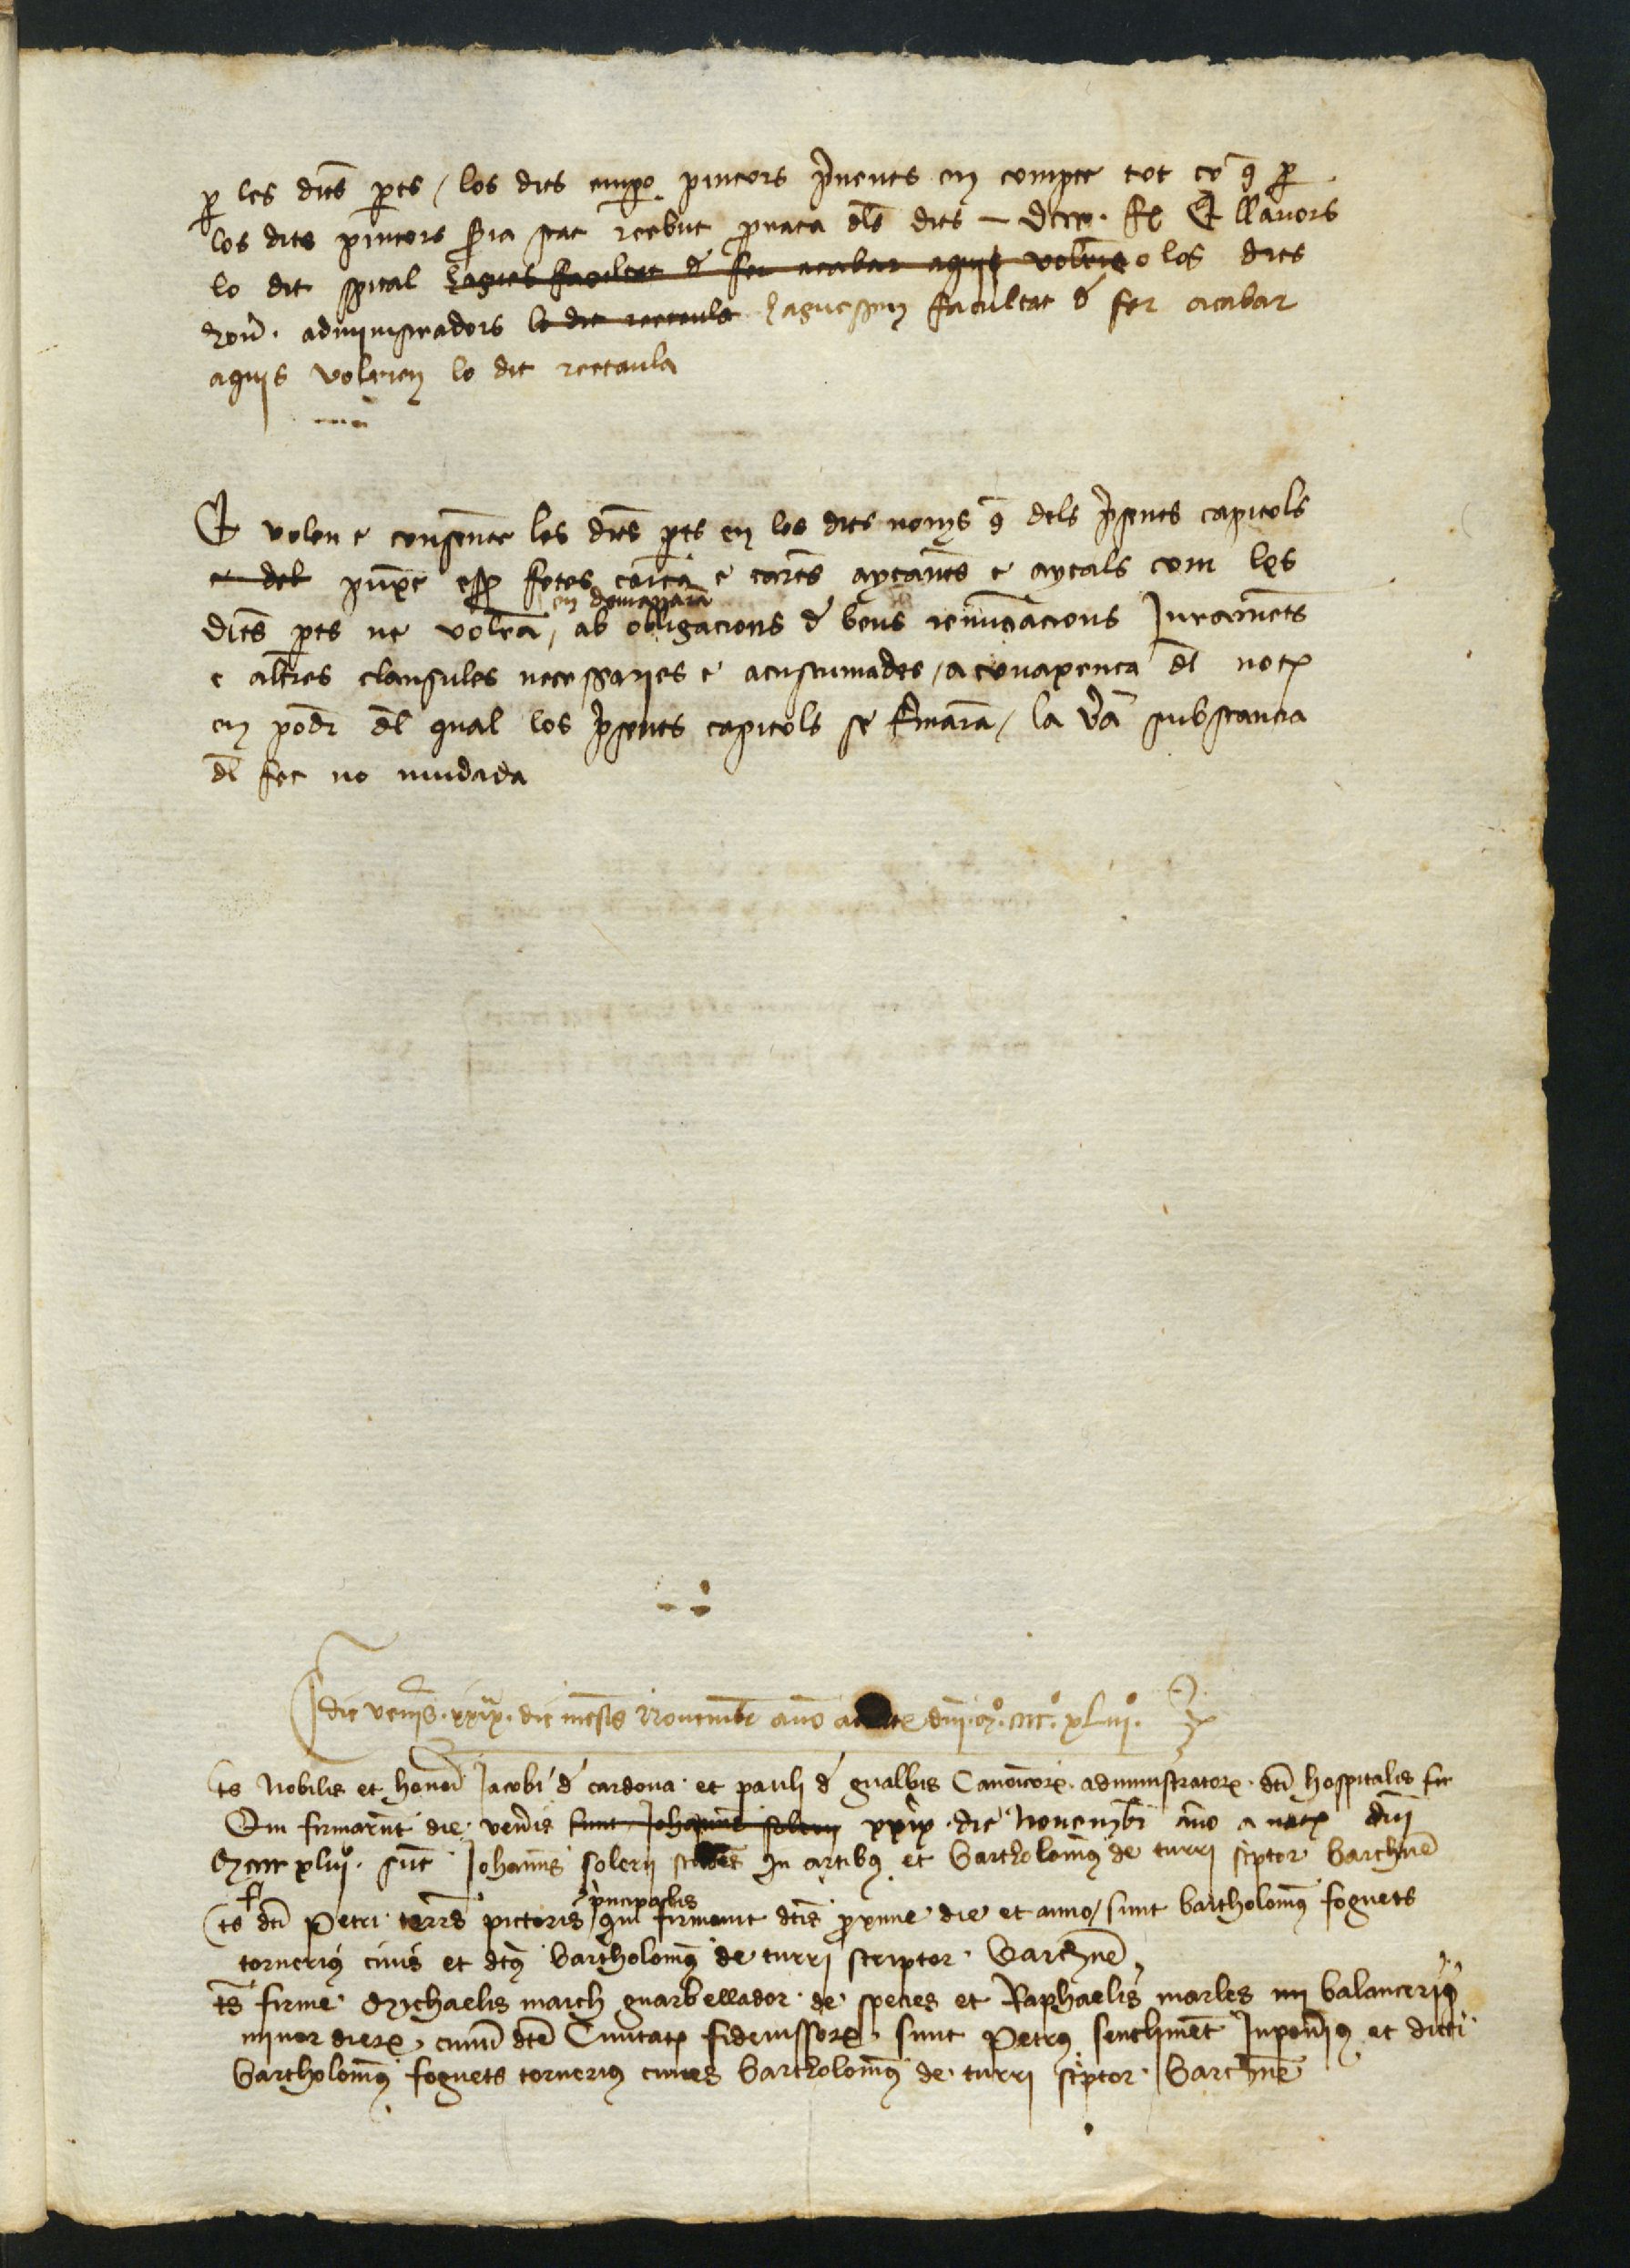 p les dits pts / los dits empo pintors prnents en compte tot ço q p
los dits pintors sia stat reebut prata dls dits — dccc. fl E llavors
lo dit spital hagues facultat d fer acabar aquis volria o los dits
honr. administradors lo dit rectaula haguessen facultat d fer acabar
aquis volrien lo dit rectaula
E volen e consenten les dits pts en los dits noms q dels prsents capitols
e del puxe esser fetes carta e cartes aytantes e aytals com les
en demanara
dits pts ne volra, ab obligacions d bens renunciacions Juraments
e altres clausules necessaries e acustumades / a conaxença dl not
en podr dl qual los prsents capitols se fmara / la va substancia
dl fet no mudada
die venis. xxix. die mesis Novembr ano a nat dni. mº. cccc. xLiii.
ts Nobilis et honor Jacobi d cardona et pauli d gualbis Canoicor. administrator. dci hospitalis fir
Qui firmarunt die venis sunt Johannes solerii xxix. die Novembr ano a nat dni
Mcccc xliiiº. sunt Johannes solerii studes In artibus et Bartholomeus de turri scptor Barchne
ts dci Petri terres pictoris principalis qui firmavit dcis proxime die et anno / sunt bartholomeus foguets
tornerius civis et dcus bartholomeus de turri scriptor Barchne
ts firme Mychaelis march guarbellador de species et Raphaelis marles balancerius
minor dier, civiu dce Civitatis fideiussor, sunt Petrus sentliment Juponerius et dicti
Bartholomeus foguets tornerius cives Bartholomeus de turri scptor Barchne